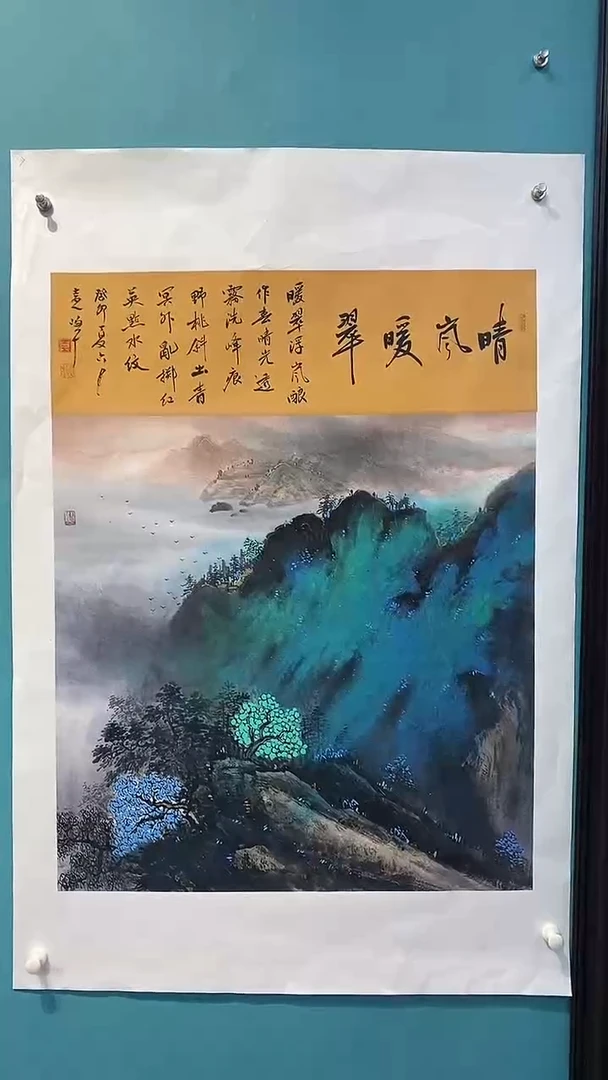 晴岚暖翠
暖翠浮岚酿
作春晴光透
雾洗峰痕
野桃斜出青
冥外亂掷红
英点水纹
癸卯夏六月